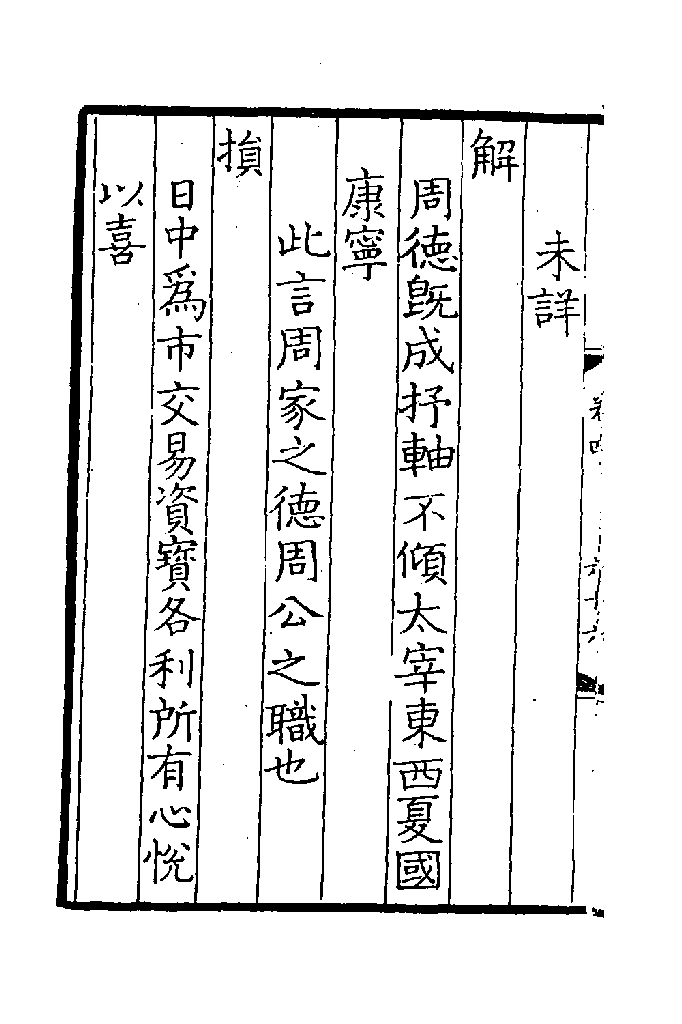 未詳
解
周德旣成抒軸不傾太宰東西夏國
康寧
此言周家之德周公之職也
損
日中爲市交易資寶各利所有心悅
以喜